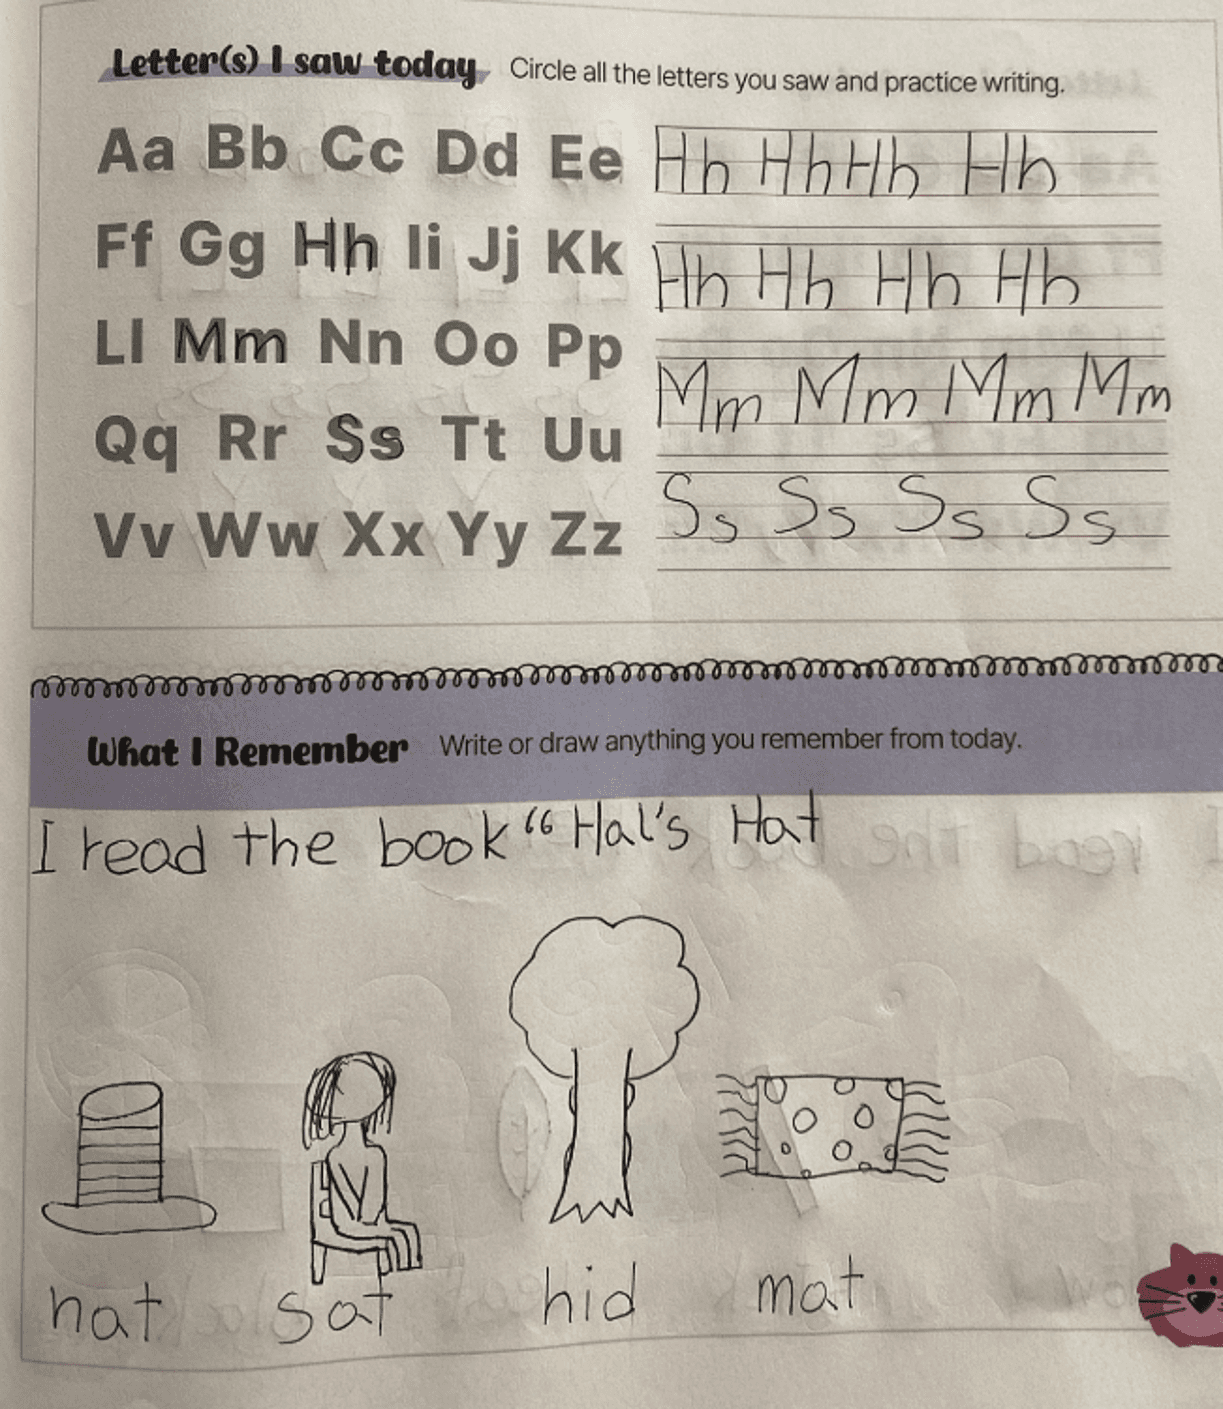 Letter(s) I saw today Circle all the letters you saw and practice writing.
Aa Bb Cc Dd Ee Hh Hh Hh Hh
Ff Gg Hh Ii Jj Kk Hh Hh Hh Hh
Ll Mm Nn Oo Pp Mm Mm Mm Mm
Qq Rr Ss Tt Uu Ss Ss Ss Ss
Vv Ww Xx Yy Zz
What I Remember Write or draw anything you remember from today.
I read the book “Hal's Hat
hat sat hid mat